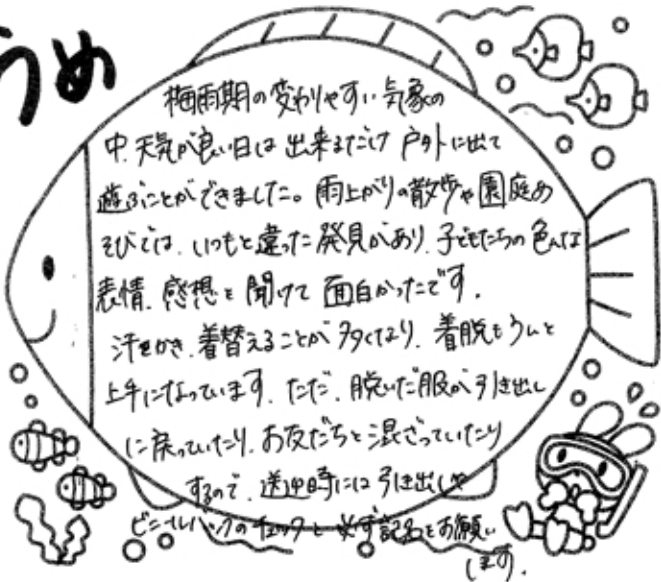 うめ
梅雨期の変わりやすい気象の
中、天気が良い日は出来るだけ戸外に出て
遊ぶことができました。雨上がりの散歩や園庭あ
そびでは、いつもと違った発見があり、子どもたちの色んな
表情、感想を聞けて面白かったです。
汗をかき、着替えることが多くなり、着脱もうんと
上手になっています。ただ、脱いだ服が引き出し
に戻っていたり、お友だちと混ざっていたり
するので、送迎時には引き出しや
ビニールバックのチェックと必ず記名をお願い
します。